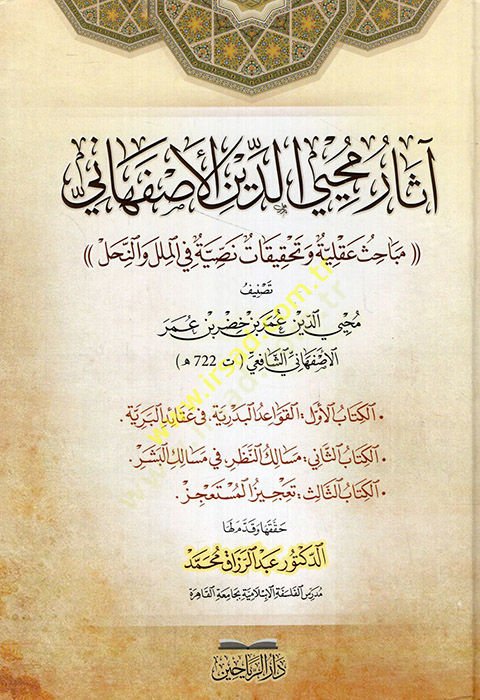 آثار محيي الدين الأصفهاني
(( مباحث عقلية وتحقيقات نصية في الملل والنحل ))
تصنيف
محيي الدين عمر بن خضر بن عمر
الأصفهاني الشافعي ( ت 722 هـ )
• الكتاب الأول : القواعد البدرية، في عقائد البرية.
• الكتاب الثاني : مسالك النظر، في مسالك البشر.
• الكتاب الثالث : تعجيز المستعجز.
حققها وقدم لها
الدكتور عبد الرزاق محمد
مدرس الفلسفة الإسلامية بجامعة القاهرة
دار الرياحين
www.irsad.com.tr